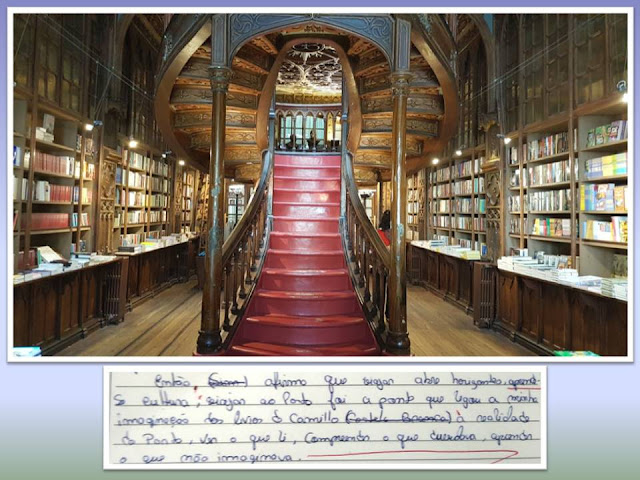 Então, (com) afirmo que viajar abre horizontes, aprende-
se cultura; viajar ao Porto foi a ponte que ligou a minha
imaginação dos livros d Camillo (Castelo Branco) à realidade
do Porto, ver o que li, compreender o que descobria, aprender
o que não imaginava.